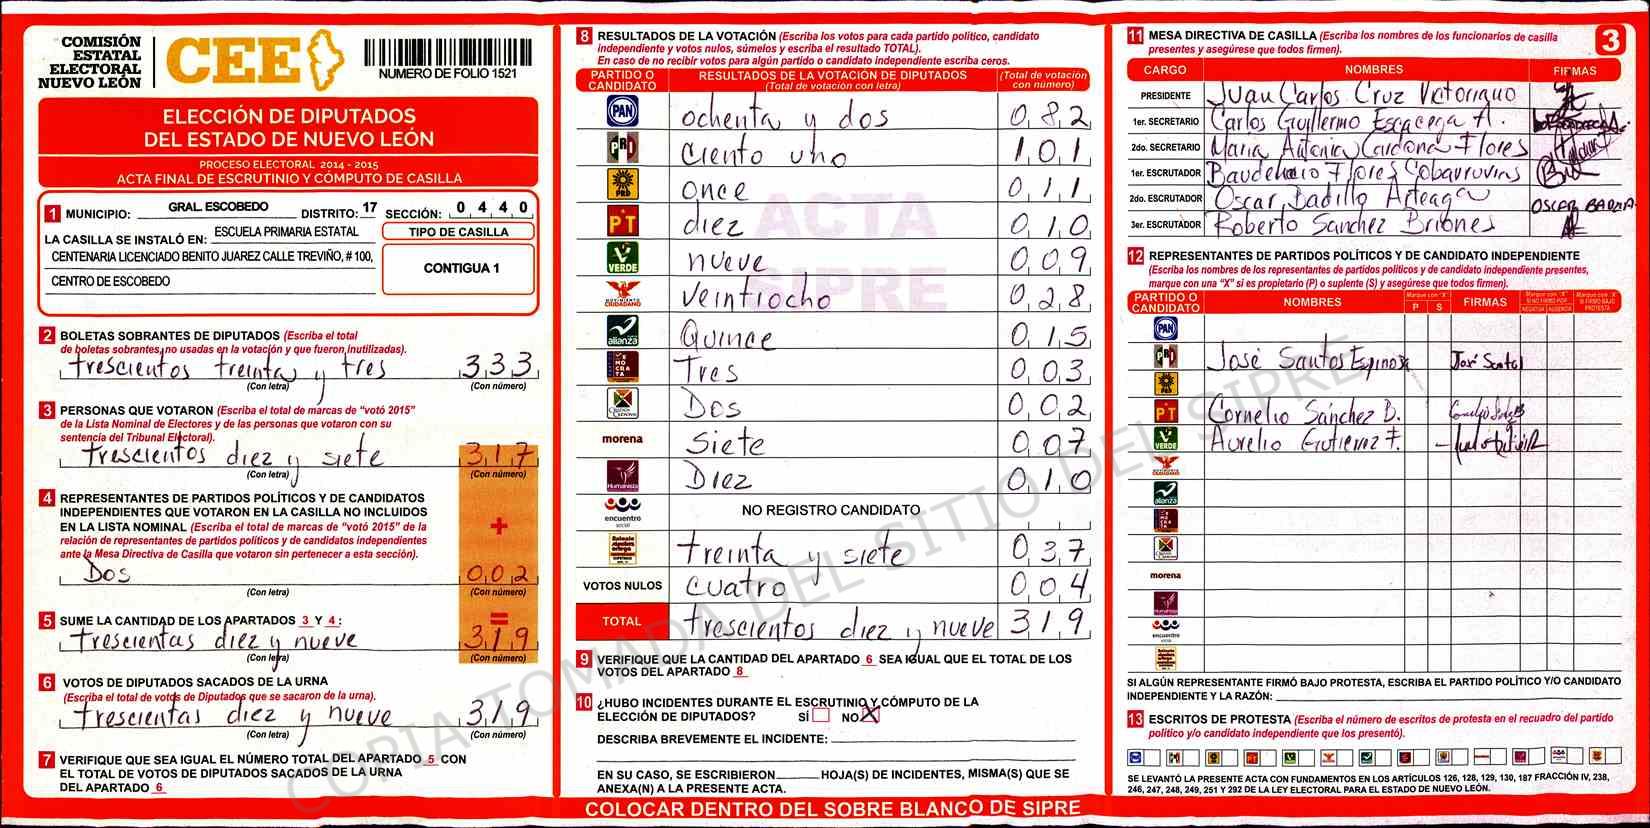 COMISIÓN
ESTATAL
ELECTORAL
NUEVO LEÓN
CEE
NUMERO DE FOLIO 1521
ELECCIÓN DE DIPUTADOS
DEL ESTADO DE NUEVO LEÓN
PROCESO ELECTORAL 2014 - 2015
ACTA FINAL DE ESCRUTINIO Y CÓMPUTO DE CASILLA
1 MUNICIPIO: GRAL. ESCOBEDO DISTRITO: 17 SECCIÓN: 0 4 4 0
LA CASILLA SE INSTALÓ EN: ESCUELA PRIMARIA ESTATAL
CENTENARIA LICENCIADO BENITO JUAREZ CALLE TREVIÑO, # 100,
CENTRO DE ESCOBEDO
TIPO DE CASILLA
CONTIGUA 1
2 BOLETAS SOBRANTES DE DIPUTADOS (Escriba el total
de boletas sobrantes, no usadas en la votación y que fueron inutilizadas).
trescientos treinta y tres 3 3 3
(Con letra) (Con número)
3 PERSONAS QUE VOTARON (Escriba el total de marcas de "votó 2015"
de la Lista Nominal de Electores y de las personas que votaron con su
sentencia del Tribunal Electoral).
trescientos diez y siete 3 1 7
(Con letra) (Con número)
4 REPRESENTANTES DE PARTIDOS POLÍTICOS Y DE CANDIDATOS
INDEPENDIENTES QUE VOTARON EN LA CASILLA NO INCLUIDOS
EN LA LISTA NOMINAL (Escriba el total de marcas de "votó 2015" de la
relación de representantes de partidos políticos y de candidatos independientes
ante la Mesa Directiva de Casilla que votaron sin pertenecer a esta sección).
+
Dos 0 0 2
(Con letra) (Con número)
=
5 SUME LA CANTIDAD DE LOS APARTADOS 3 Y 4 :
trescientas diez y nueve 3 1 9
(Con letra) (Con número)
6 VOTOS DE DIPUTADOS SACADOS DE LA URNA
(Escriba el total de votos de Diputados que se sacaron de la urna).
trescientas diez y nueve 3 1 9
(Con letra) (Con número)
7 VERIFIQUE QUE SEA IGUAL EL NÚMERO TOTAL DEL APARTADO 5 CON
EL TOTAL DE VOTOS DE DIPUTADOS SACADOS DE LA URNA
DEL APARTADO 6
8 RESULTADOS DE LA VOTACIÓN (Escriba los votos para cada partido político, candidato
independiente y votos nulos, súmelos y escriba el resultado TOTAL).
En caso de no recibir votos para algún partido o candidato independiente escriba ceros.
PARTIDO O CANDIDATO RESULTADOS DE LA VOTACIÓN DE DIPUTADOS (Total de votación con letra) (Total de votación con número)
PAN ochenta y dos 0 8 2
PRI ciento uno 1 0 1
PRD once 0 1 1
PT diez 0 1 0
VERDE nueve 0 0 9
MOVIMIENTO CIUDADANO veintiocho 0 2 8
alianza Quince 0 1 5
DEMOCRATA Tres 0 0 3
Dos 0 0 2
morena siete 0 0 7
Humanista Diez 0 1 0
encuentro social NO REGISTRO CANDIDATO
treinta y siete 0 3 7
VOTOS NULOS cuatro 0 0 4
TOTAL trescientos diez y nueve 3 1 9
ACTA
SIPRE
9 VERIFIQUE QUE LA CANTIDAD DEL APARTADO 6 SEA IGUAL QUE EL TOTAL DE LOS
VOTOS DEL APARTADO 8
10 ¿HUBO INCIDENTES DURANTE EL ESCRUTINIO Y CÓMPUTO DE LA
ELECCIÓN DE DIPUTADOS? SÍ NO X
DESCRIBA BREVEMENTE EL INCIDENTE:
EN SU CASO, SE ESCRIBIERON HOJA(S) DE INCIDENTES, MISMA(S) QUE SE
ANEXA(N) A LA PRESENTE ACTA.
11 MESA DIRECTIVA DE CASILLA (Escriba los nombres de los funcionarios de casilla
presentes y asegúrese que todos firmen).
3
CARGO NOMBRES FIRMAS
PRESIDENTE Juan Carlos Cruz Victoriano
1er. SECRETARIO Carlos Guillermo Escacega A.
2do. SECRETARIO Maria Antonia Cardona Flores
1er. ESCRUTADOR Baudelario Flores Cobarruvias
2do. ESCRUTADOR Oscar Badillo Arteaga OSCAR BADILLA.
3er. ESCRUTADOR Roberto Sanchez Briones
12 REPRESENTANTES DE PARTIDOS POLÍTICOS Y DE CANDIDATO INDEPENDIENTE
(Escriba los nombres de los representantes de partidos políticos y de candidato independiente presentes,
marque con una "X" si es propietario (P) o suplente (S) y asegúrese que todos firmen).
PARTIDO O CANDIDATO NOMBRES Marque con "X" P S FIRMAS Marque con "X" SI NO FIRMÓ POR NEGATIVA AUSENCIA Marque con "X" SI FIRMÓ BAJO PROTESTA
PAN
PRI José Santos Espinosa José Santos
PRD
PT Cornelio Sánchez B.
VERDE Aurelio Gutierrez F.
alianza
morena
Humanista
encuentro social
SI ALGÚN REPRESENTANTE FIRMÓ BAJO PROTESTA, ESCRIBA EL PARTIDO POLÍTICO Y/O CANDIDATO
INDEPENDIENTE Y LA RAZÓN:
13 ESCRITOS DE PROTESTA (Escriba el número de escritos de protesta en el recuadro del partido
político y/o candidato independiente que los presentó).
SE LEVANTÓ LA PRESENTE ACTA CON FUNDAMENTOS EN LOS ARTÍCULOS 126, 128, 129, 130, 187 FRACCIÓN IV, 238,
246, 247, 248, 249, 251 Y 292 DE LA LEY ELECTORAL PARA EL ESTADO DE NUEVO LEÓN.
COLOCAR DENTRO DEL SOBRE BLANCO DE SIPRE
COPIA TOMADA DEL SITIO DEL SIPRE